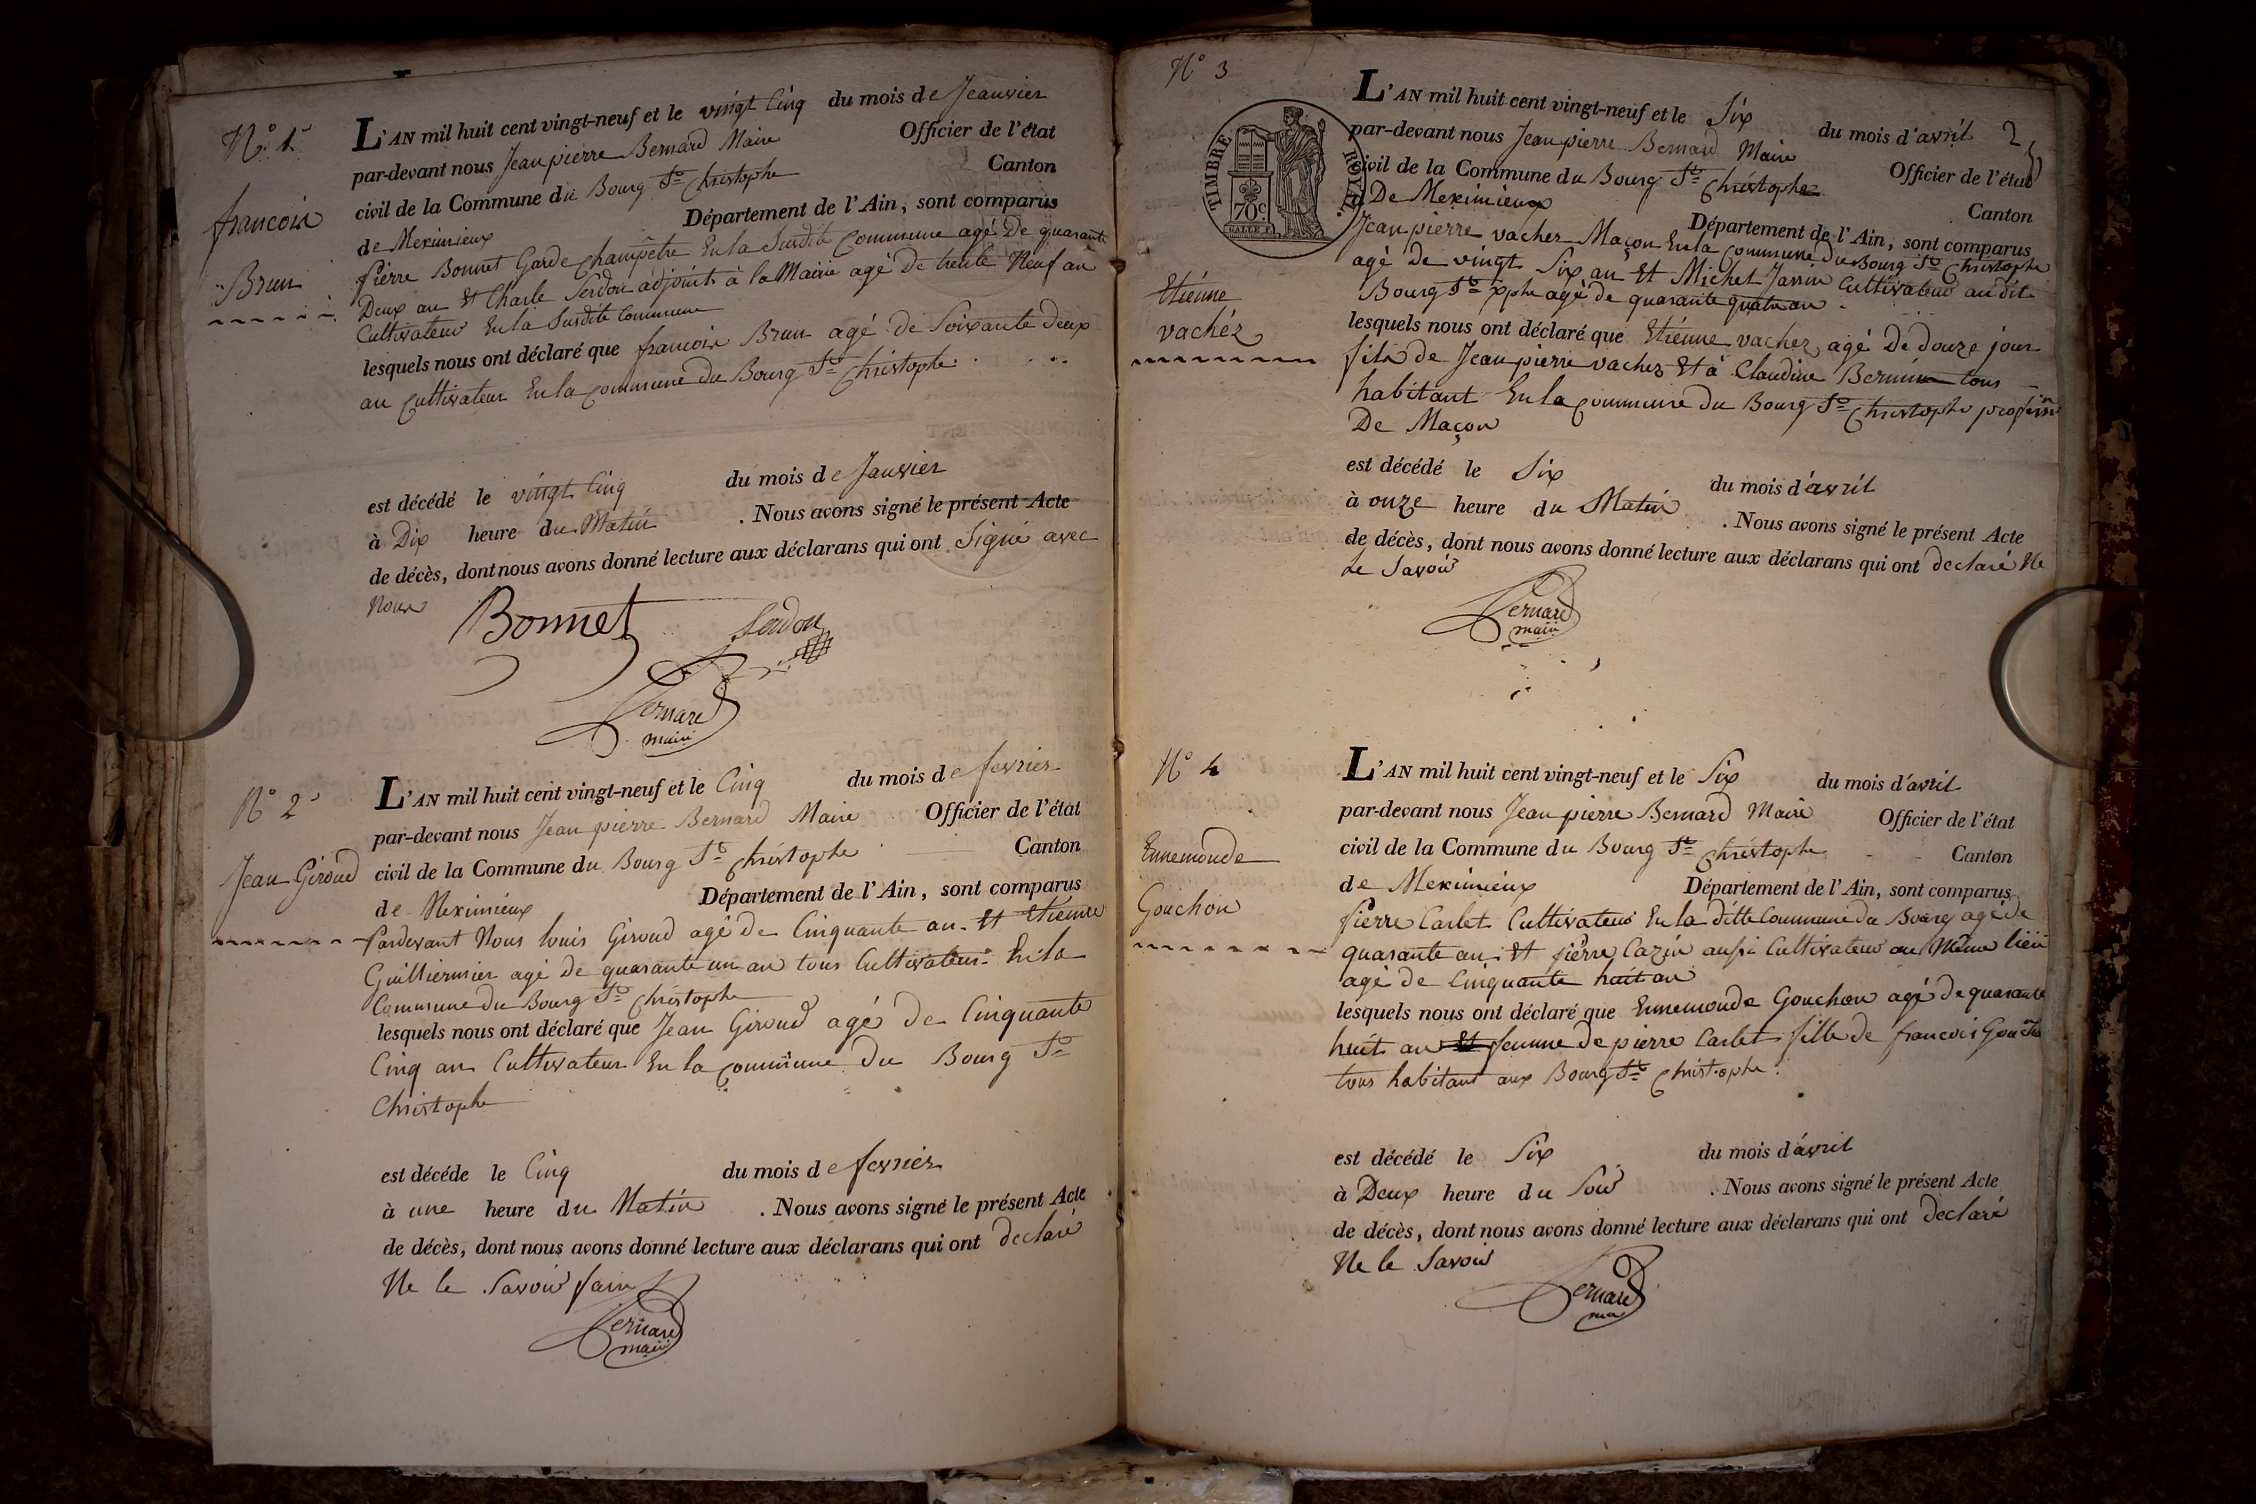 N.º 1.
françois
Brun
L'AN mil huit cent vingt-neuf et le vingt Cinq du mois de Jeanvier
par-devant nous Jean pierre Bernard Maire Officier de l'état
civil de la Commune du Bourg St Christophe Canton
de Meximieux Département de l'Ain, sont comparus
pierre Bonnet Garde Champêtre En la Susdite Commune agé De quarante
Deux an Et Charle Serdon adjoint à la Mairie agé De trente Neuf an
Cultivateur En la Susdite Commune
lesquels nous ont déclaré que françois Brun agé de Soixante deux
an Cultivateur En la Commune du Bourg St Christophe
est décédé le vingt Cinq du mois de Janvier
à Dix heure du Matin . Nous avons signé le présent Acte
de décès, dont nous avons donné lecture aux déclarans qui ont Signé avec
Nous
Bonnet Serdon
Bernard
maire
Nº 2
Jean Giroud
L'AN mil huit cent vingt-neuf et le Cinq du mois de fevrier
par-devant nous Jean pierre Bernard Maire Officier de l'état
civil de la Commune du Bourg St Christophe Canton
de Meximieux Département de l'Ain, sont comparus
Pardevant Nous louis Giroud agé de Cinquante an Et Etienne
Guilliermier agé de quarante un an tous Cultivateur En la
Commune du Bourg St Christophe
lesquels nous ont déclaré que Jean Giroud agé de Cinquante
Cinq an Cultivateur En la Commune du Bourg St
Christophe
est décéde le Cinq du mois de fevrier
à une heure du Matin . Nous avons signé le présent Acte
de décès, dont nous avons donné lecture aux déclarans qui ont declaré
Ne le Savoir faire
Bernard
maire
Nº 3
2
TIMBRE ROYAL
70c
Etiénne
vachéz
L'AN mil huit cent vingt-neuf et le Six du mois d'avril
par-devant nous Jean pierre Bernard Maire Officier de l'état
civil de la Commune du Bourg St Christophe Canton
De Meximieux Département de l'Ain, sont comparus
Jean pierre vachez Maçon En la Commune du Bourg St Christophe
agé de vingt Six an Et Michel Jassin Cultivateur au dit
Bourg St Xphe agé de quarante quatre an
lesquels nous ont déclaré que Etiénne vachez agé De douze jour
fils de Jean pierre vachez Et à Claudine Bernin tous
habitant En la Commune du Bourg St Christophe profession
De Maçon
est décédé le Six du mois d'avril
à onze heure du Matin . Nous avons signé le présent Acte
de décès, dont nous avons donné lecture aux déclarans qui ont declaré Ne
Le Savoir
Bernard
maire
Nº 4
Ennemonde
Gouchon
L'AN mil huit cent vingt-neuf et le Six du mois d'avril
par-devant nous Jean pierre Bernard Maire Officier de l'état
civil de la Commune du Bourg St Christophe Canton
de Meximieux Département de l'Ain, sont comparus
pierre Carlet Cultivateur En la ditte Commune du Bourg agé de
quarante an Et pierre Cazin aussi Cultivateur au Même lieu
agé de Cinquante huit an
lesquels nous ont déclaré que Ennemonde Gouchon agé de quarante
huit an Et femme de pierre Carlet fille de francois Gouchon
tous habitant aux Bourg St Christophe
est décédé le Six du mois d'avril
à Deux heure du Soir . Nous avons signé le présent Acte
de décès, dont nous avons donné lecture aux déclarans qui ont declaré
Ne le Savoir
Bernard
mai